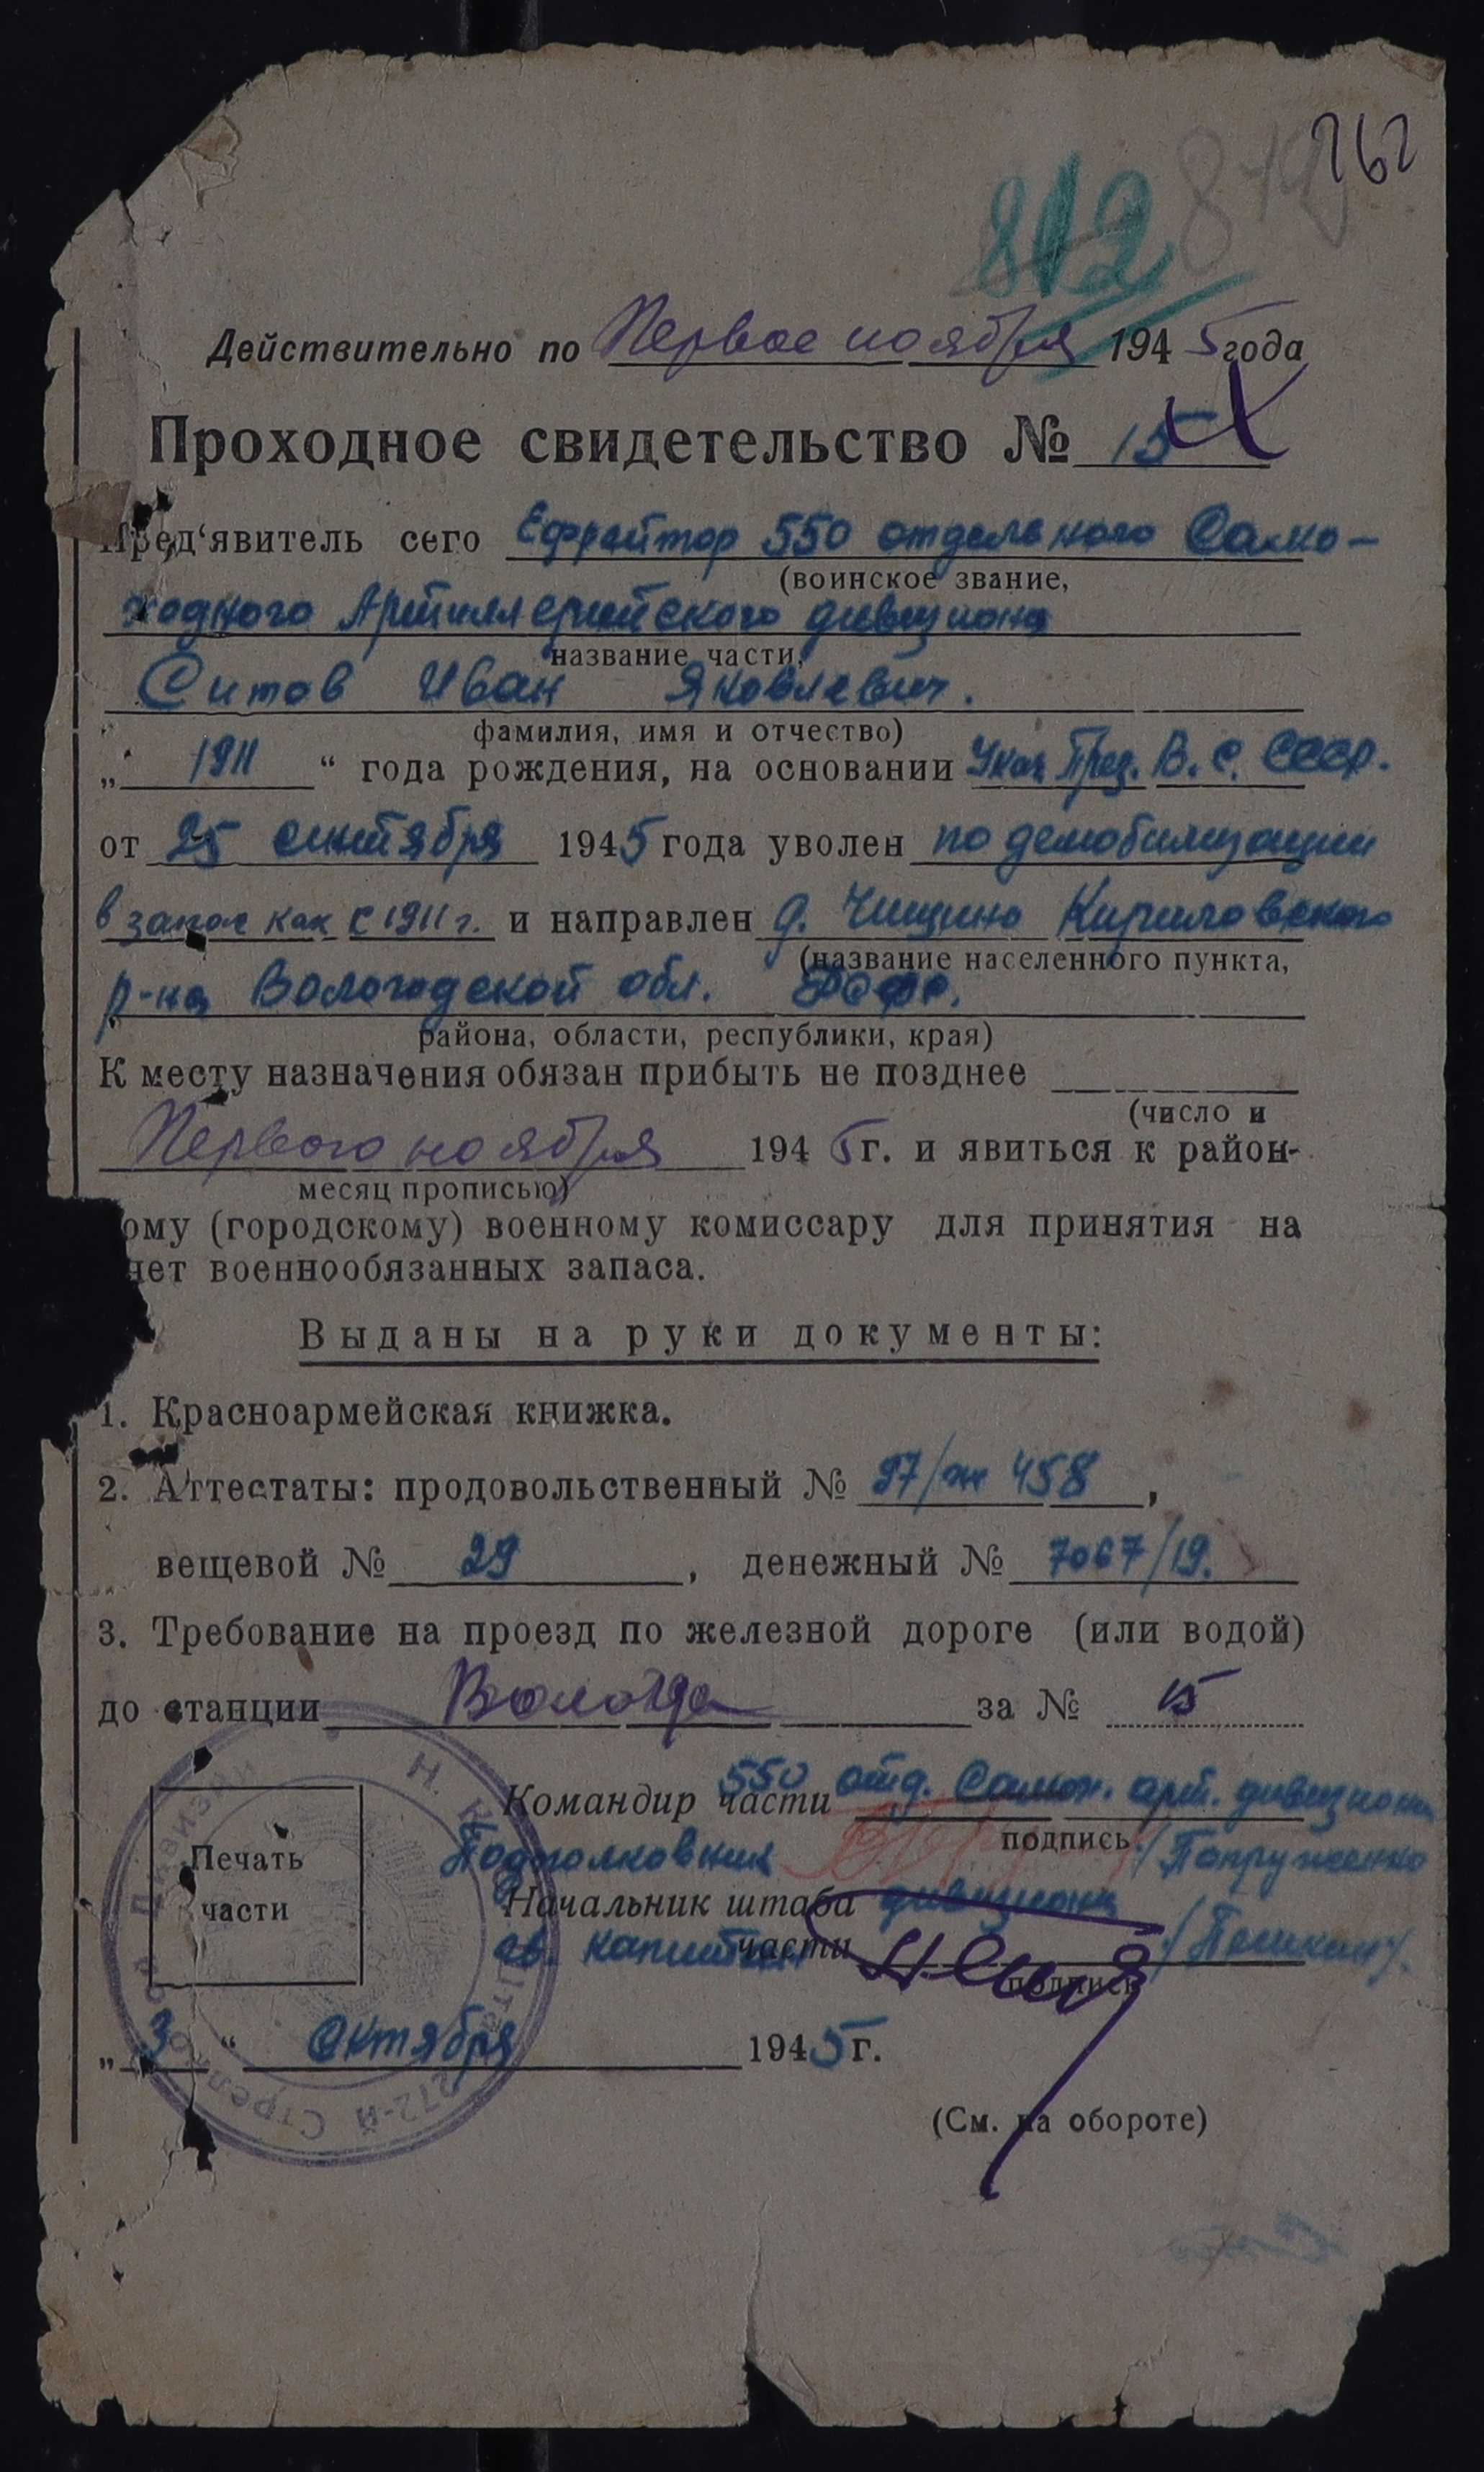 262
812
Действительно по Первое ноября 1945 года
Проходное свидетельство № 15
Пред'явитель сего Ефрейтор 550 отдельного Само-
(воинское звание,
ходного Артиллерийского дивизиона
название части,
Ситов Иван Яковлевич.
фамилия, имя и отчество)
„ 1911 “ года рождения, на основании Указ През. В. С. СССР.
от 25 сентября 1945 года уволен по демобилизации
в запас как с 1911 г. и направлен д. Чищино Кириловского
(название населенного пункта,
р-на Вологодской обл.
района, области, республики, края)
К месту назначения обязан прибыть не позднее
(число и
Первого ноября 1945 г. и явиться к район-
месяц прописью)
ому (городскому) военному комиссару для принятия на
чет военнообязанных запаса.
Выданы на руки документы:
1. Красноармейская книжка.
2. Аттестаты: продовольственный № 97/ж 458,
вещевой № 29, денежный № 7067/19.
3. Требование на проезд по железной дороге (или водой)
до станции Вологда за № 15
Командир части 550 отд. Самох. арт. дивизиона
подпись
Подполковник /Попруженко
Печать
части
Начальник штаба дивизиона
гв. капитан части /Пешкин/.
подпись
„ 3 “ Октября 1945 г.
272-й Стрелковая Дивизия
(См. на обороте)